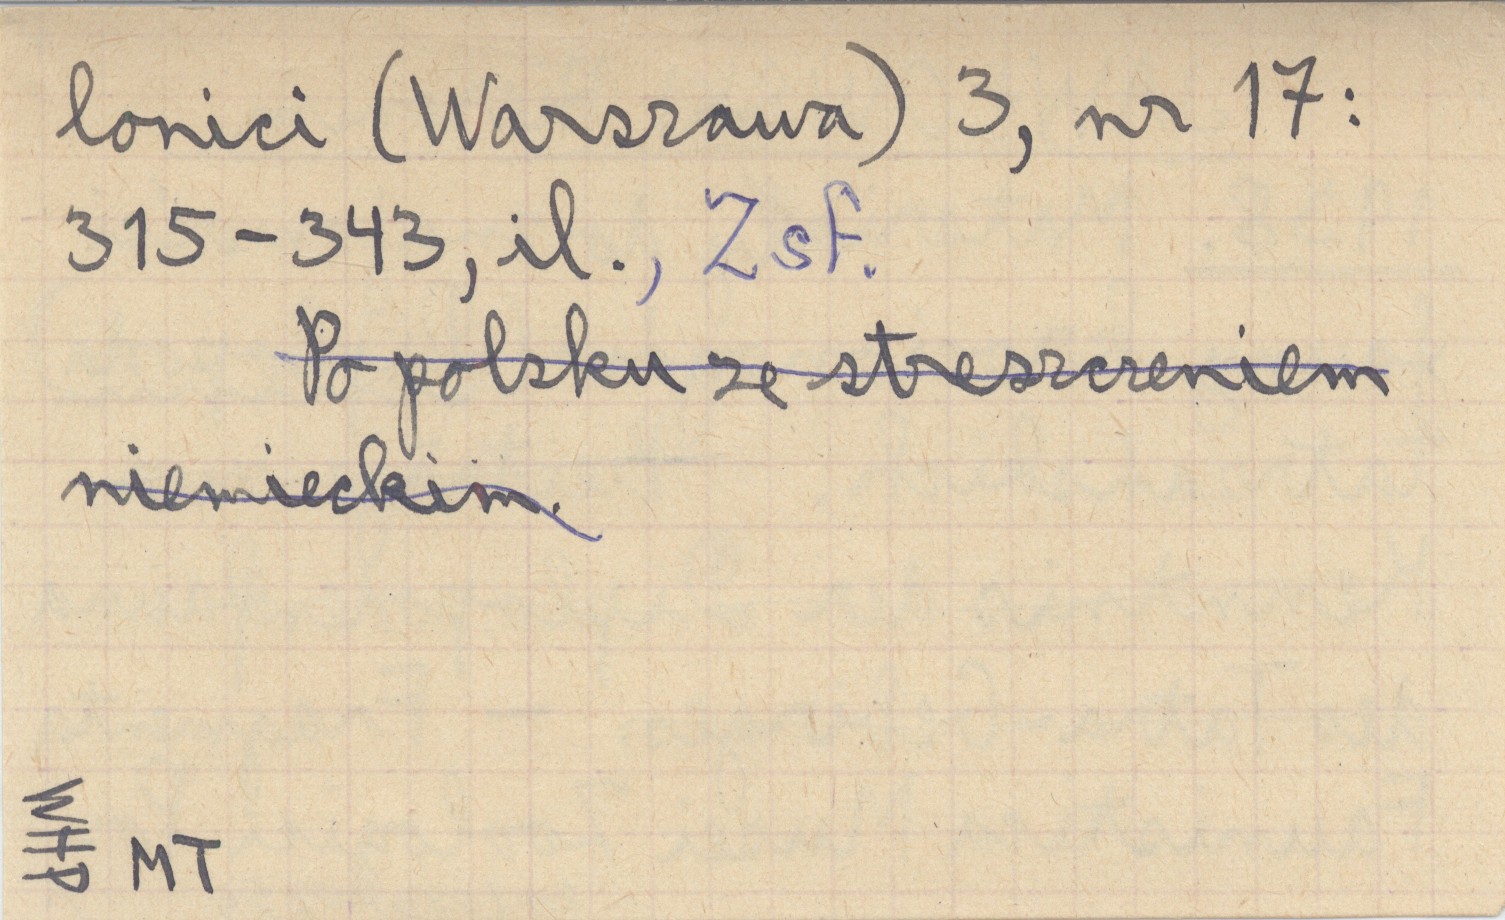 lonici (Warszawa) 3, nr 17:
315-343, il., Zsf.
Po polsku ze streszczeniem
niemieckim.
WHP
MT